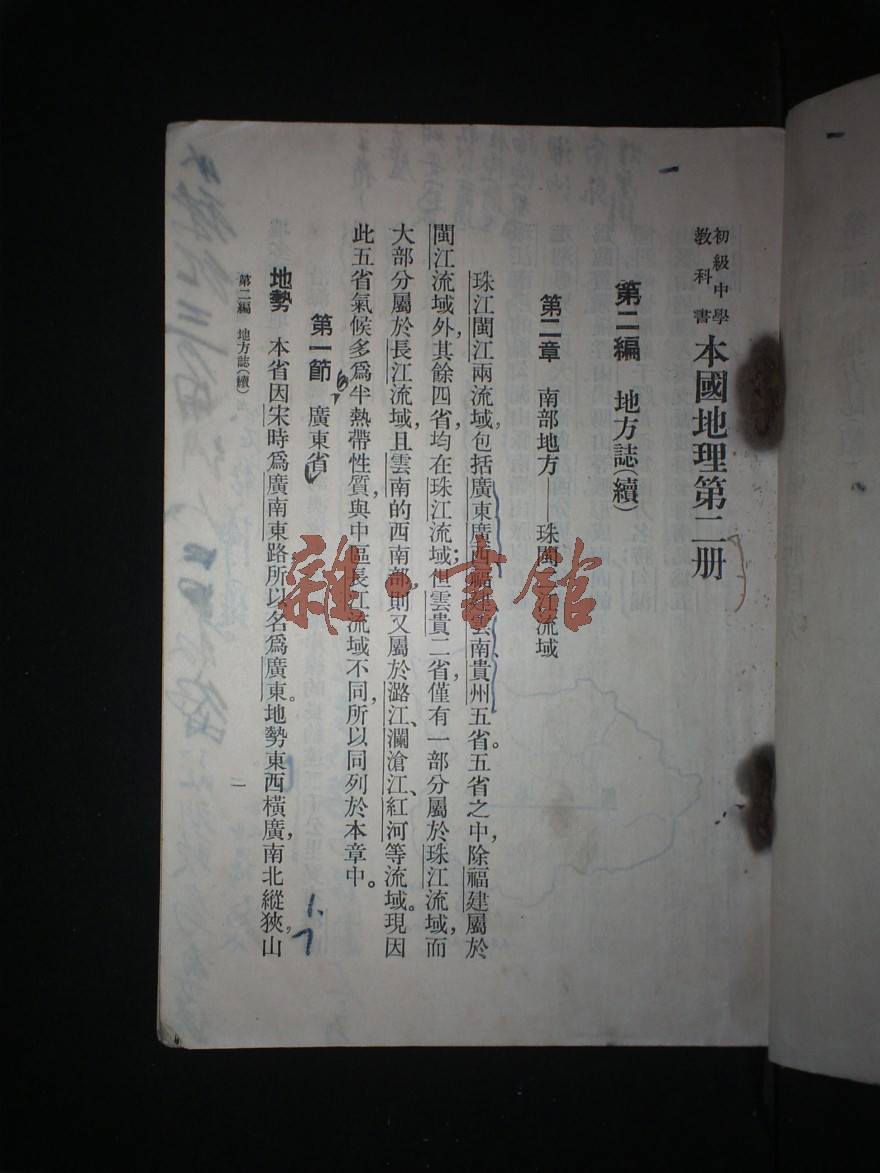 初級中學
教科書
本國地理第二册
第二編　地方誌(續)
第二章　南部地方——珠閩二江流域
珠江閩江兩流域,包括廣東廣西福建雲南貴州五省。五省之中,除福建屬於
閩江流域外,其餘四省,均在珠江流域;但雲貴二省,僅有一部分屬於珠江流域,而
大部分屬於長江流域,且雲南的西南部,則又屬於潞江、瀾滄江、紅河等流域。現因
此五省氣候多爲半熱帶性質,與中區長江流域不同,所以同列於本章中。
第一節　廣東省
地勢　本省因宋時爲廣南東路所以名爲廣東。地勢東西橫廣,南北縱狹,山
第二編　地方誌(續)
一
1.7
雜·書館